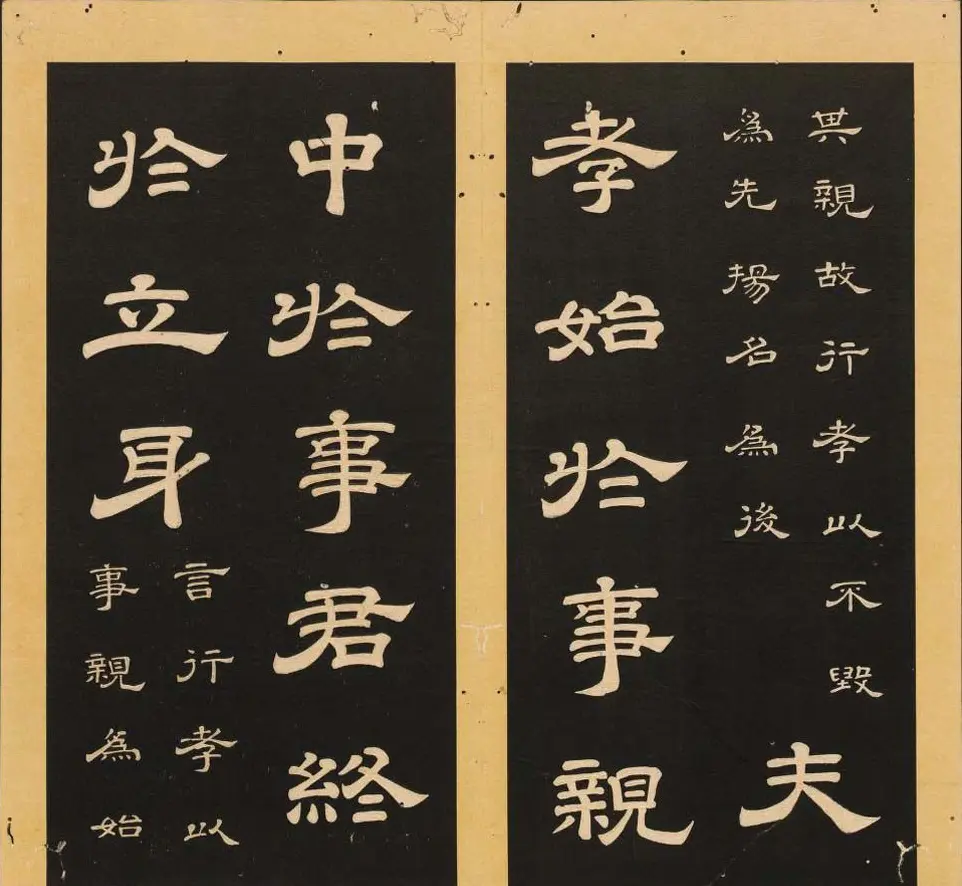 其親故行孝以不毀
爲先揚名爲後
夫
孝始於事親
中於事君終
於立身
言行孝以
事親爲始